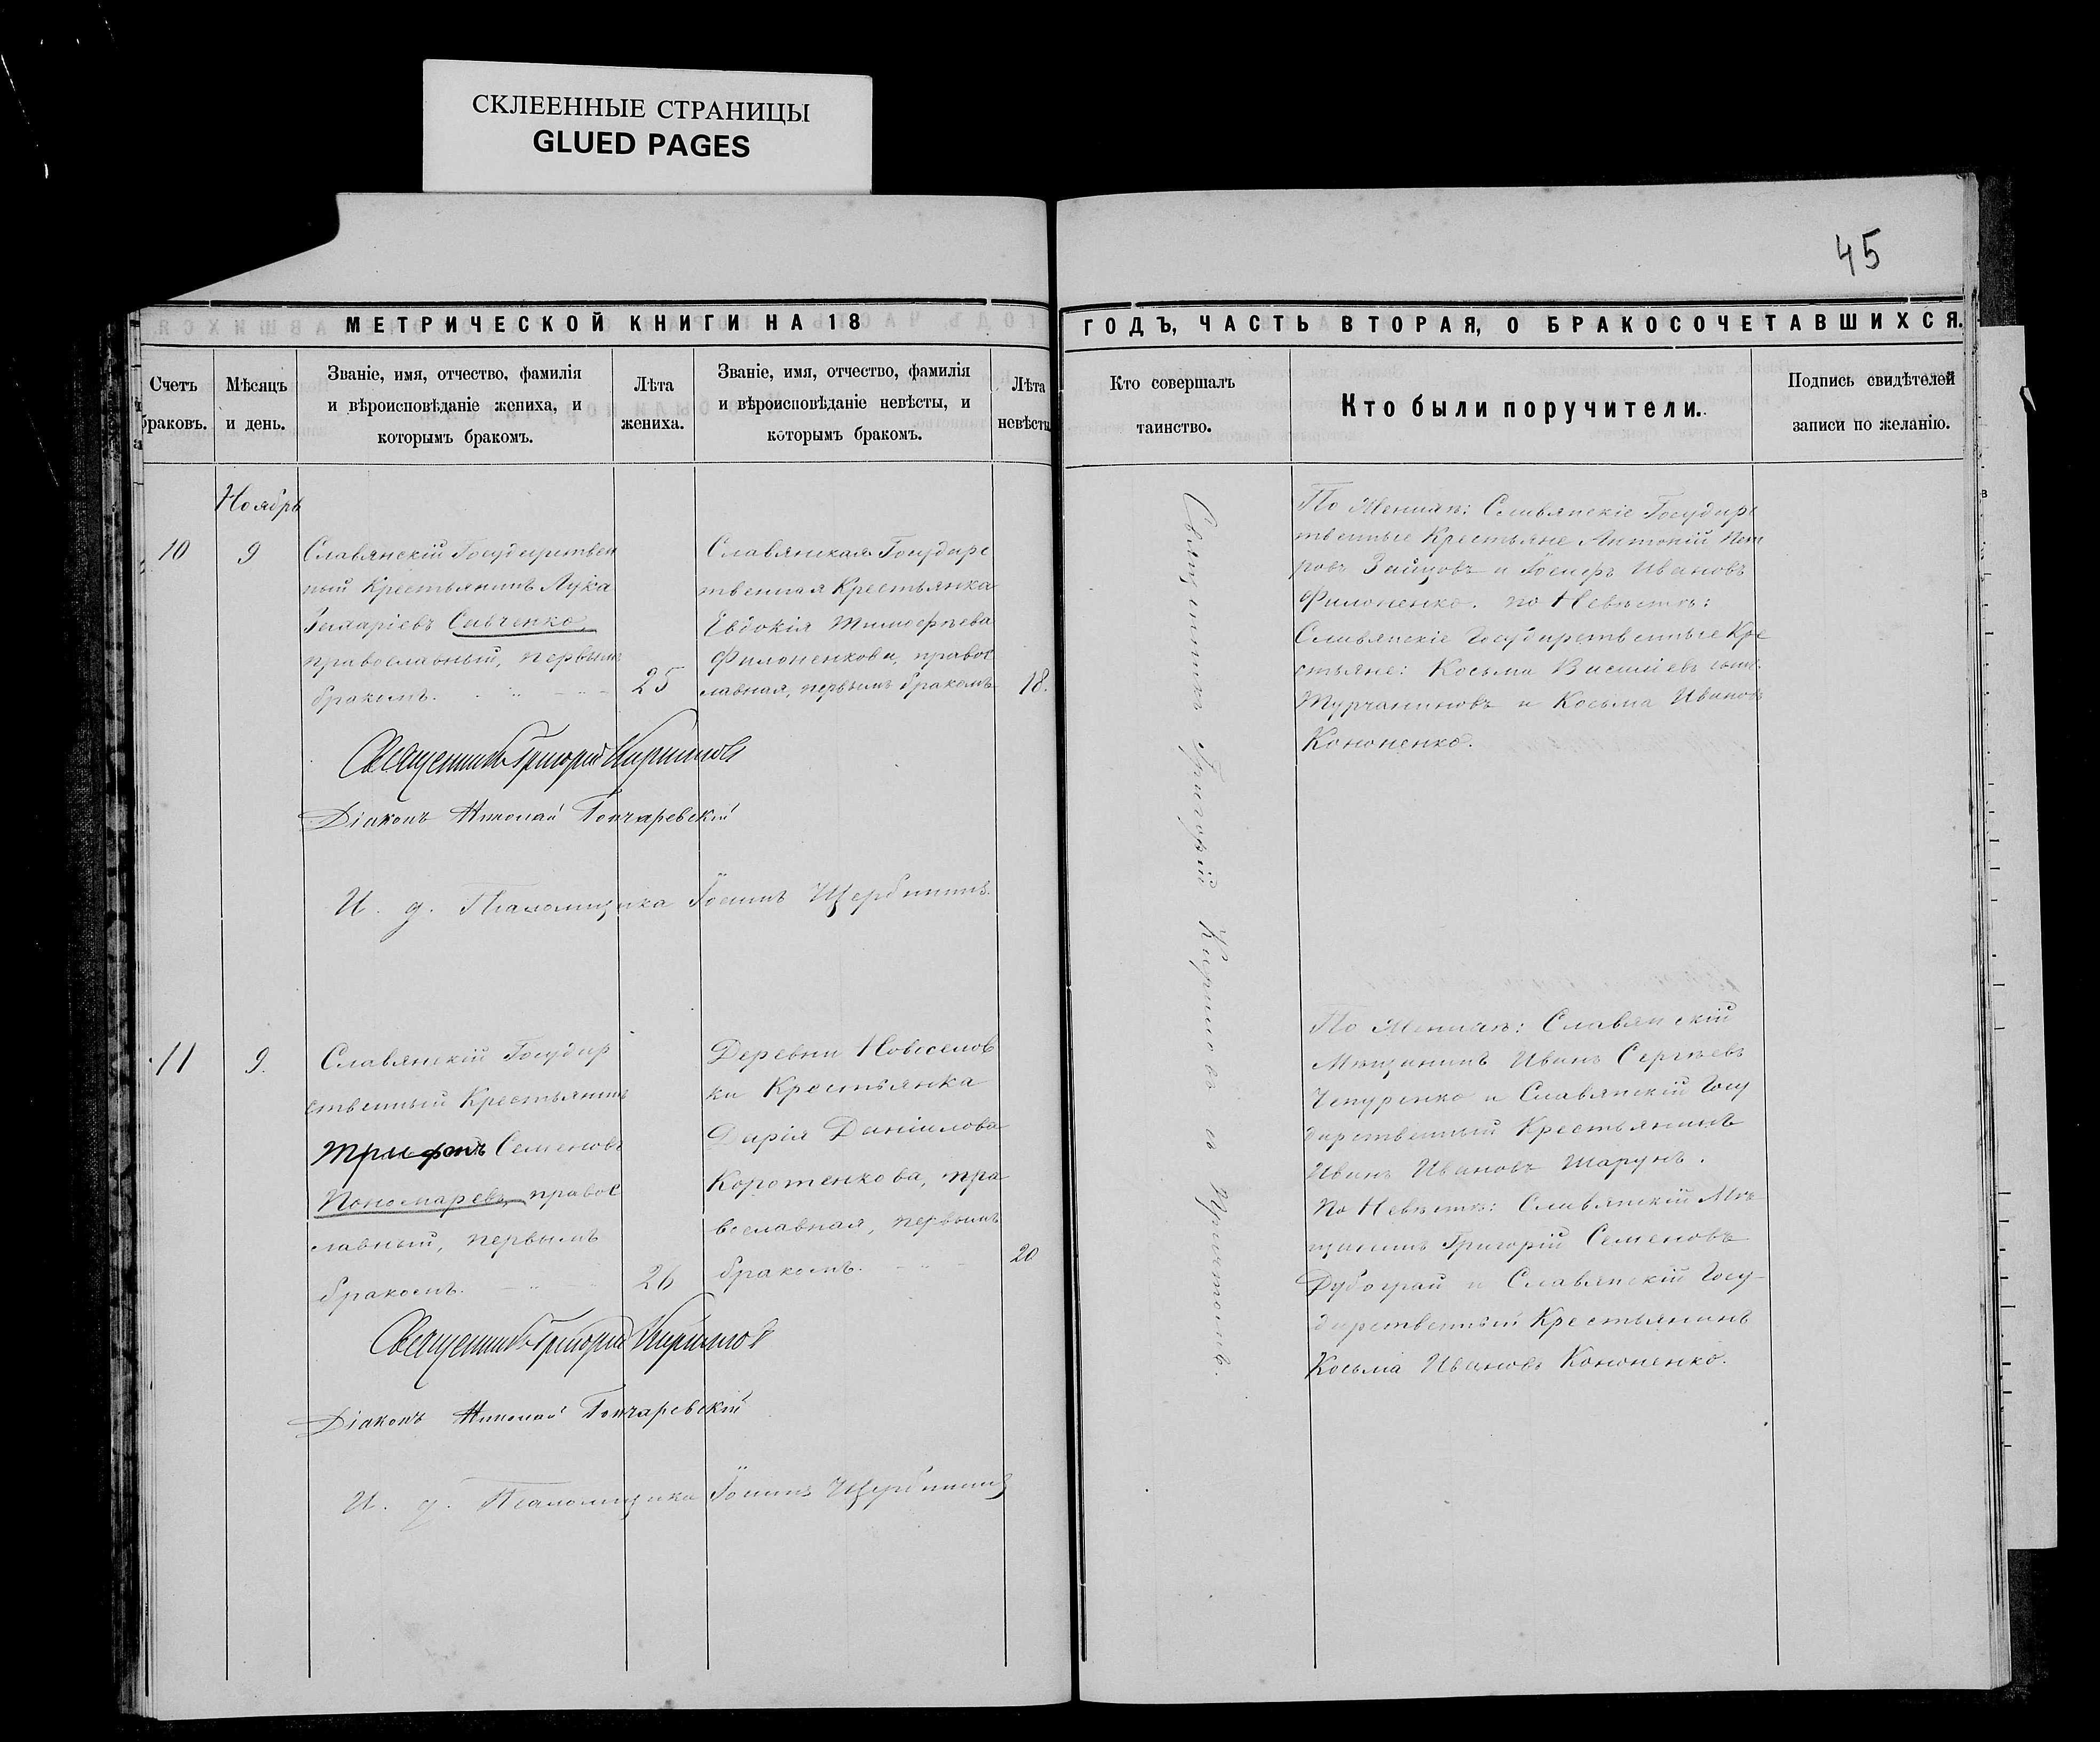 СКЛЕЕННЫЕ СТРАНИЦЫ
GLUED PAGES
45
МЕТРИЧЕСКОЙ КНИГИ НА 18
ГОДЪ, ЧАСТЬ ВТОРАЯ, О БРАКОСОЧЕТАВШИХСЯ.
Счетъ
браковъ.
Мѣсяцъ
и день.
Званіе, имя, отчество, фамилія
и вѣроисповѣданіе жениха, и
которымъ бракомъ.
Лѣта
жениха.
Званіе, имя, отчество, фамилія
и вѣроисповѣданіе невѣсты, и
которымъ бракомъ.
Лѣта
невѣсты
Кто совершалъ
таинство.
Кто были поручители.
Подпись свидѣтелей
записи по желанію.
Ноябрь
10
9
Славянскій Государствен
ный Крестьянинъ Лука
Савченко,
православный, первымъ
бракомъ.
25
Славянская Государс
твенная Крестьянка
Евдокія Тимофѣева
Филоненкова, правос
лавная, первымъ бракомъ
18.
Священникъ Григорій Кириловъ
Діаконъ Николай Гончаревскій
И. д. Псаломщика Іоаннъ Щербининъ.
Священникъ Григорій Кириловъ съ Причтомъ.
По Женихѣ: Славянскіе Государс
твенные Крестьяне Антоній Пет
ровъ Зайцовъ и Іосифъ Ивановъ
Филоненко. по Невѣстѣ:
Славянскіе Государственные Кре
стьяне: Косьма Василіевъ сынъ
Турчаниновъ и Косьма Ивановъ
Кононенко.
11
9.
Славянскій Государ
ственный Крестьянинъ
Трифонъ Семеновъ
Пономаревъ, правос
лавный, первымъ
бракомъ.
26
Деревни Новоселов
ки Крестьянка
Дарія Даніилова
Коротенкова, пра
вославная, первымъ
бракомъ.
20
Священникъ Григорій Кириловъ
Діаконъ Николай Гончаревскій
И. д. Псаломщика Іоаннъ Щербининъ
По Женихѣ: Славянскій
Мѣщанинъ Иванъ Сергѣевъ
Чепуренко и Славянскій Госу
дарственный Крестьянинъ
Иванъ Ивановъ Шарунъ.
По Невѣстѣ: Славянскій Мѣ
щанинъ Григорій Семеновъ
и Славянскій Госу-
дарственный Крестьянинъ
Косьма Ивановъ Кононенко.